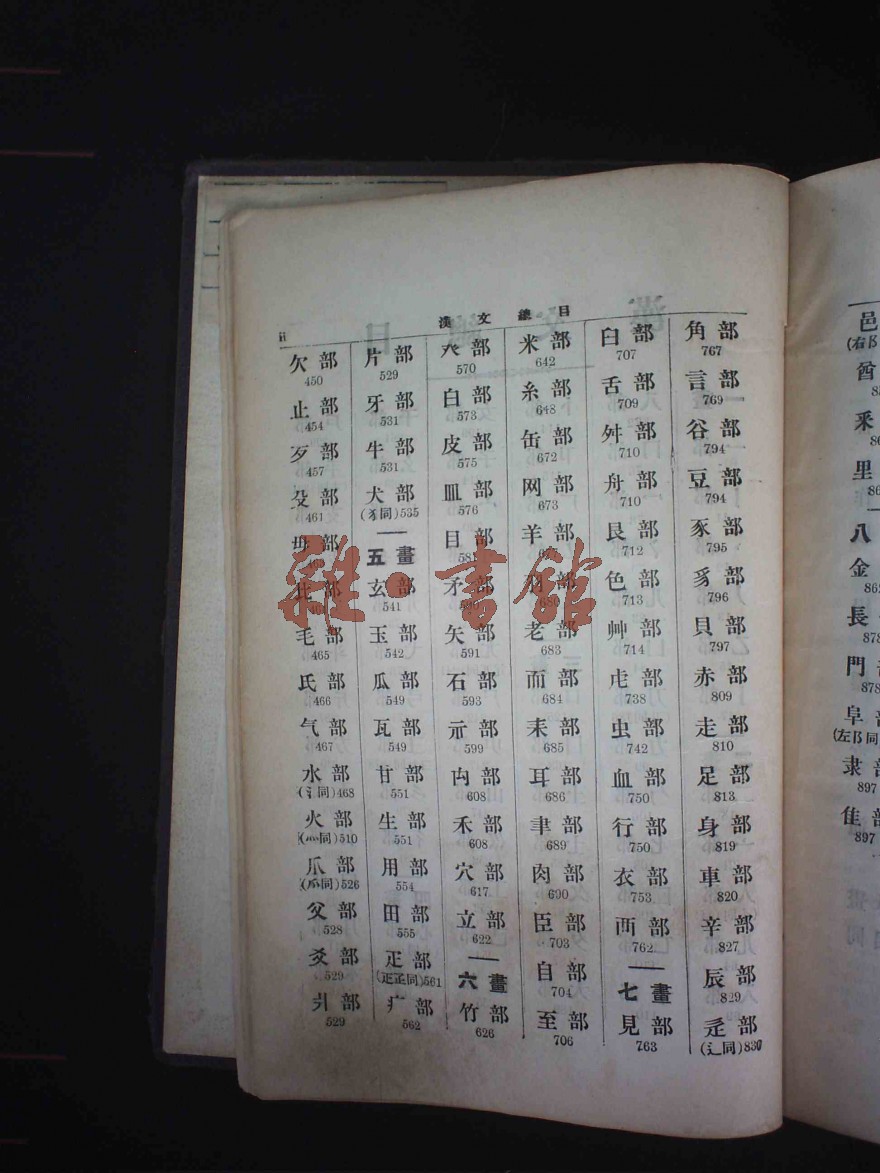 ii
漢文總目
欠部
450
止部
454
歹部
457
殳部
461
毋部
比部
毛部
465
氏部
466
气部
467
水部
(氵同)468
火部
(灬同)510
爪部
(爫同)526
父部
528
爻部
529
爿部
529
片部
529
牙部
531
牛部
531
犬部
(犭同)535
五畫
玄部
541
玉部
542
瓜部
549
瓦部
549
甘部
551
生部
551
用部
554
田部
555
疋部
561
疒部
562
癶部
570
白部
573
皮部
575
皿部
576
目部
581
矛部
矢部
591
石部
593
示部
599
禸部
608
禾部
608
穴部
617
立部
622
六畫
竹部
626
米部
642
糸部
648
缶部
672
网部
673
羊部
羽部
680
老部
683
而部
684
耒部
685
耳部
686
聿部
689
肉部
690
臣部
703
自部
704
至部
706
臼部
707
舌部
709
舛部
710
舟部
710
艮部
712
色部
713
艸部
714
虍部
738
虫部
742
血部
750
行部
750
衣部
753
襾部
762
七畫
見部
763
角部
767
言部
769
谷部
794
豆部
794
豕部
795
豸部
796
貝部
797
赤部
809
走部
810
足部
813
身部
819
車部
820
辛部
827
辰部
829
辵部
(辶同)830
邑
(右阝
酋
釆
里
八
金
862
長
878
門
878
阜部
(左阝同
隶部
897
隹部
897
雜·書館